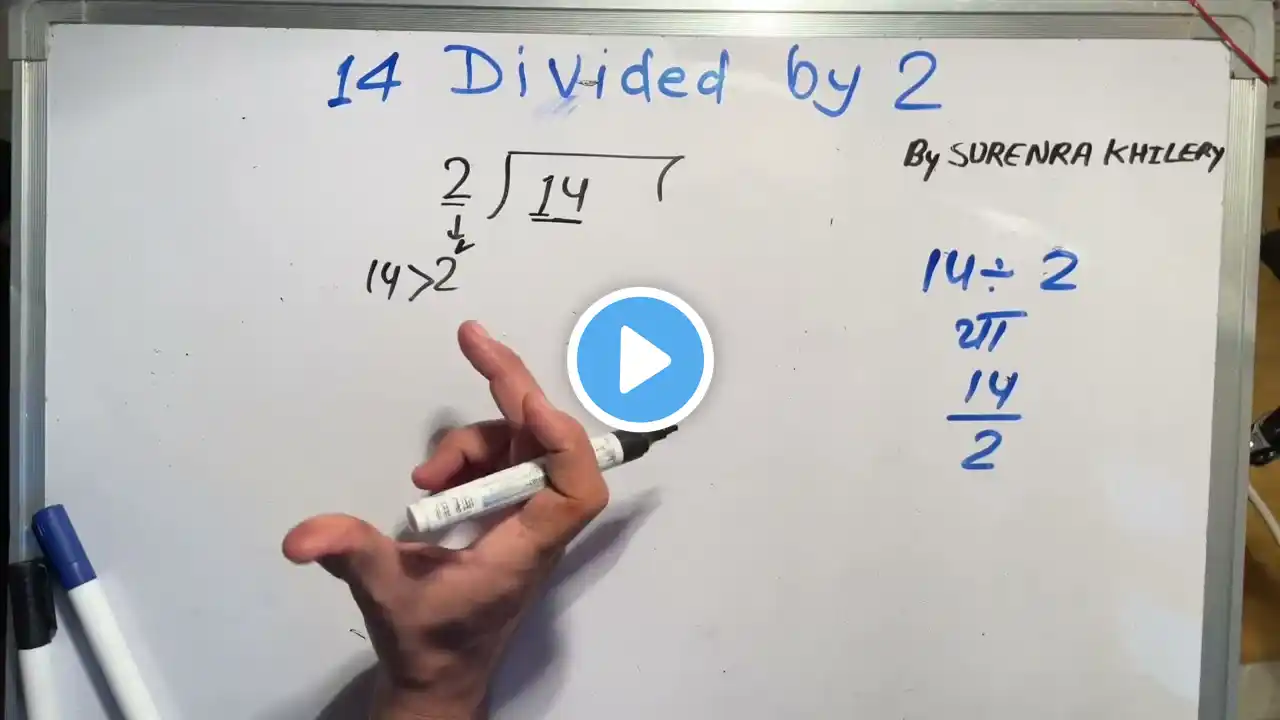 14 Divided by 2
By SURENRA KHILERY
2 ) 14 (
14>2
14÷2
या
14
2